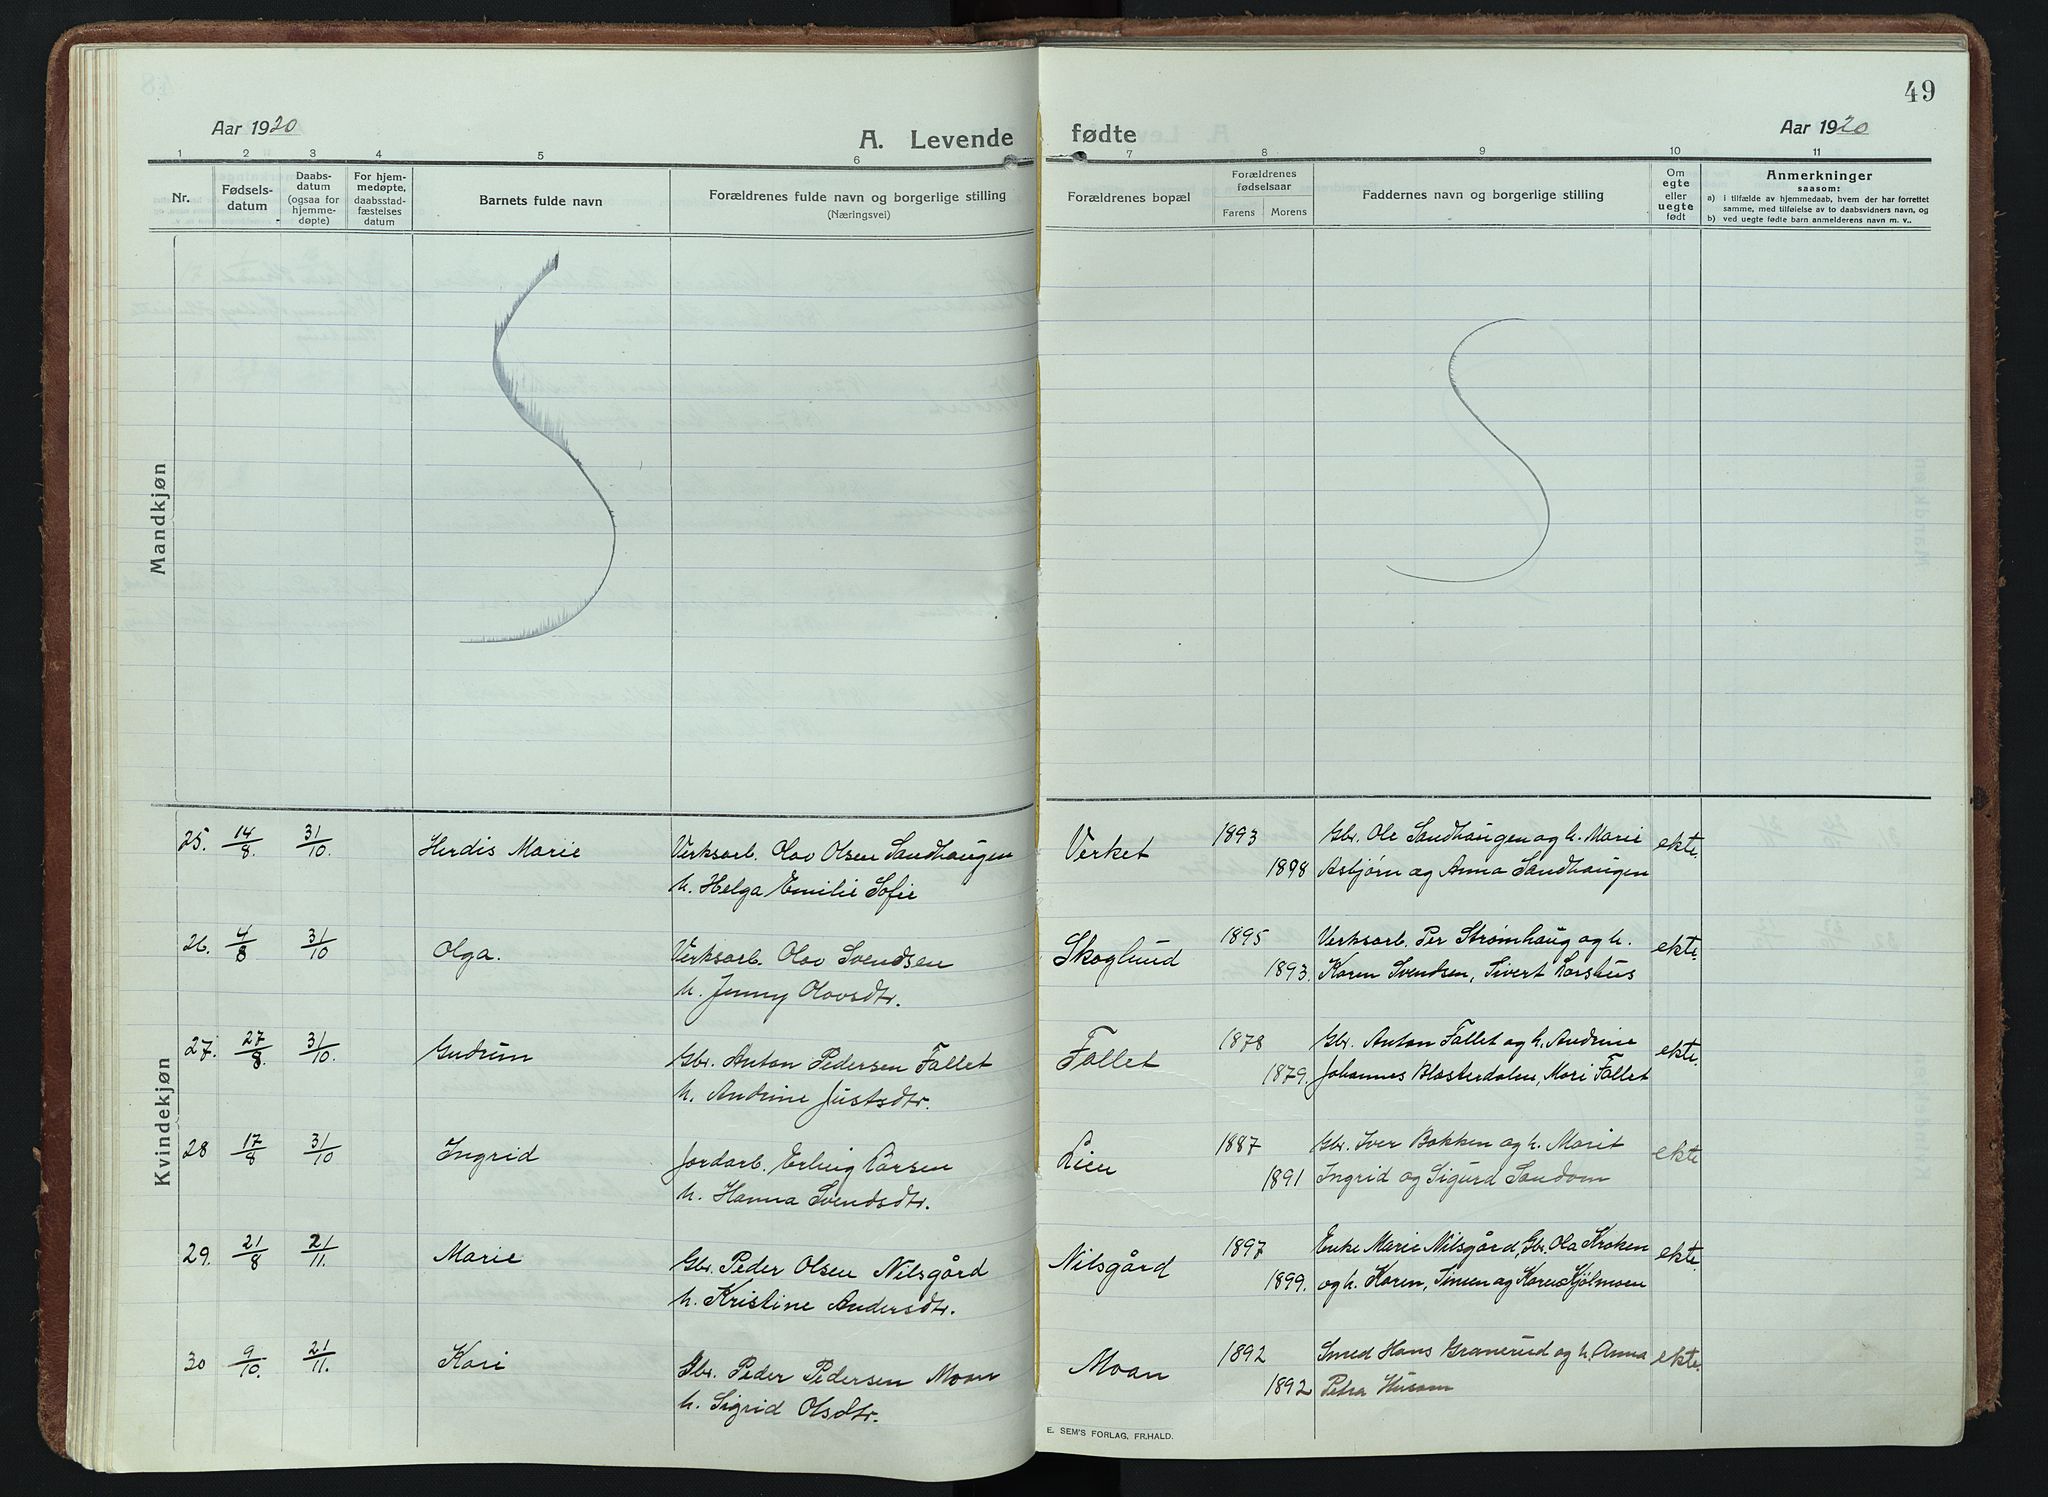 49
Aar 1920
A. Levende fødte
Aar 1920
1 2 3 4 5 6 7 8 9 10 11
Nr.
Fødselsdatum
Daabsdatum (ogsaa for hjemmedøpte)
For hjemmedøpte, daabsstadfæstelses datum
Barnets fulde navn
Forældrenes fulde navn og borgerlige stilling
(Næringsvei)
Forældrenes bopæl
Forældrenes fødselsaar
Farens Morens
Faddernes navn og borgerlige stilling
Om egte eller uegte født
Anmerkninger
saasom:
a) i tilfælde av hjemmedaab, hvem der har forrettet
samme, med tilføielse av to daabsvidners navn, og
b) ved uegte fødte barn anmelderens navn m. v..
Mandkjøn
Kvindekjøn
25. 14/8. 31/10. Herdis Marie Verksarb. Olav Olsen Sandhaugen Verket 1893 Gbr. Ole Sandhaugen og h. Marie ekte.
h. Helga Emilie Sofie 1898 Asbjørn og Anna Sandhaugen
26. 4/8 31/10 Olga. Verksarb. Olav Svendsen Skoglund 1895 Verksarb. Per Strømhaug og h. ekte.
h. Jenny Olavsdtr. 1893. Karen Svendsen, Sivert
27. 27/8. 31/10. Gudrun Gbr. Anton Pedersen Fallet Fallet 1878 Gbr. Anton Fallet og h. Andrine ekte.
h. Andrine Justsdtr. 1879. Johannes Blæsterdalen, Mari Fallet
28 17/8 31/10 Ingrid Jordarb. Erling Larsen Lien 1887 Gbr. Iver Bakken og h. Marit ekte
h. Hanna Svendsdtr. 1891 Ingrid og Sigurd Sandom
29. 21/8 21/11. Marie Gbr. Peder Olsen Nilsgård Nilsgård 1897 Enke Marie Nilsgård, Gbr. Ola Kroken ekte.
h. Kristine Andersdtr. 1899. og h. Karen, Simen og Karen Kjølmoen
30 9/10. 21/11. Kari Gbr. Peder Pedersen Moan Moan 1892 Smed Hans Granerud og h. Anna ekte.
h. Sigrid Olsdtr. 1892 Petra Husom
E. SEM'S FORLAG, FR.HALD.